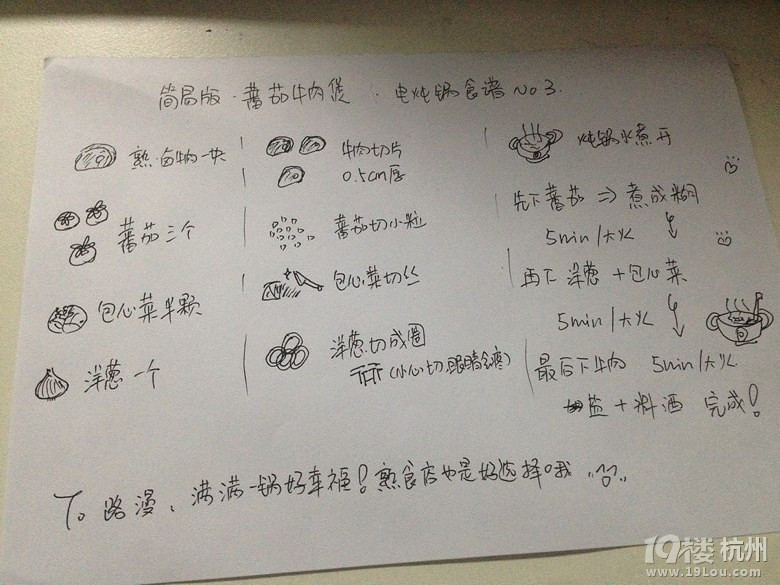 简易版·蕃茄牛肉煲·电炖锅食谱No3.
熟·卤牛肉一块
蕃茄三个
包心菜半颗
洋葱一个
牛肉切片
0.5cm厚
蕃茄切小粒
包心菜切丝
洋葱切成圈
(小心切,眼睛会疼)
炖锅水煮开
先下蕃茄⇒煮成糊
5min/大火
再下洋葱+包心菜
5min/大火
最后下牛肉 5min/大火
盐+料酒 完成!
To 路漫、满满一锅好幸福!熟食店也是好选择哦
19楼杭州
www.19Lou.com